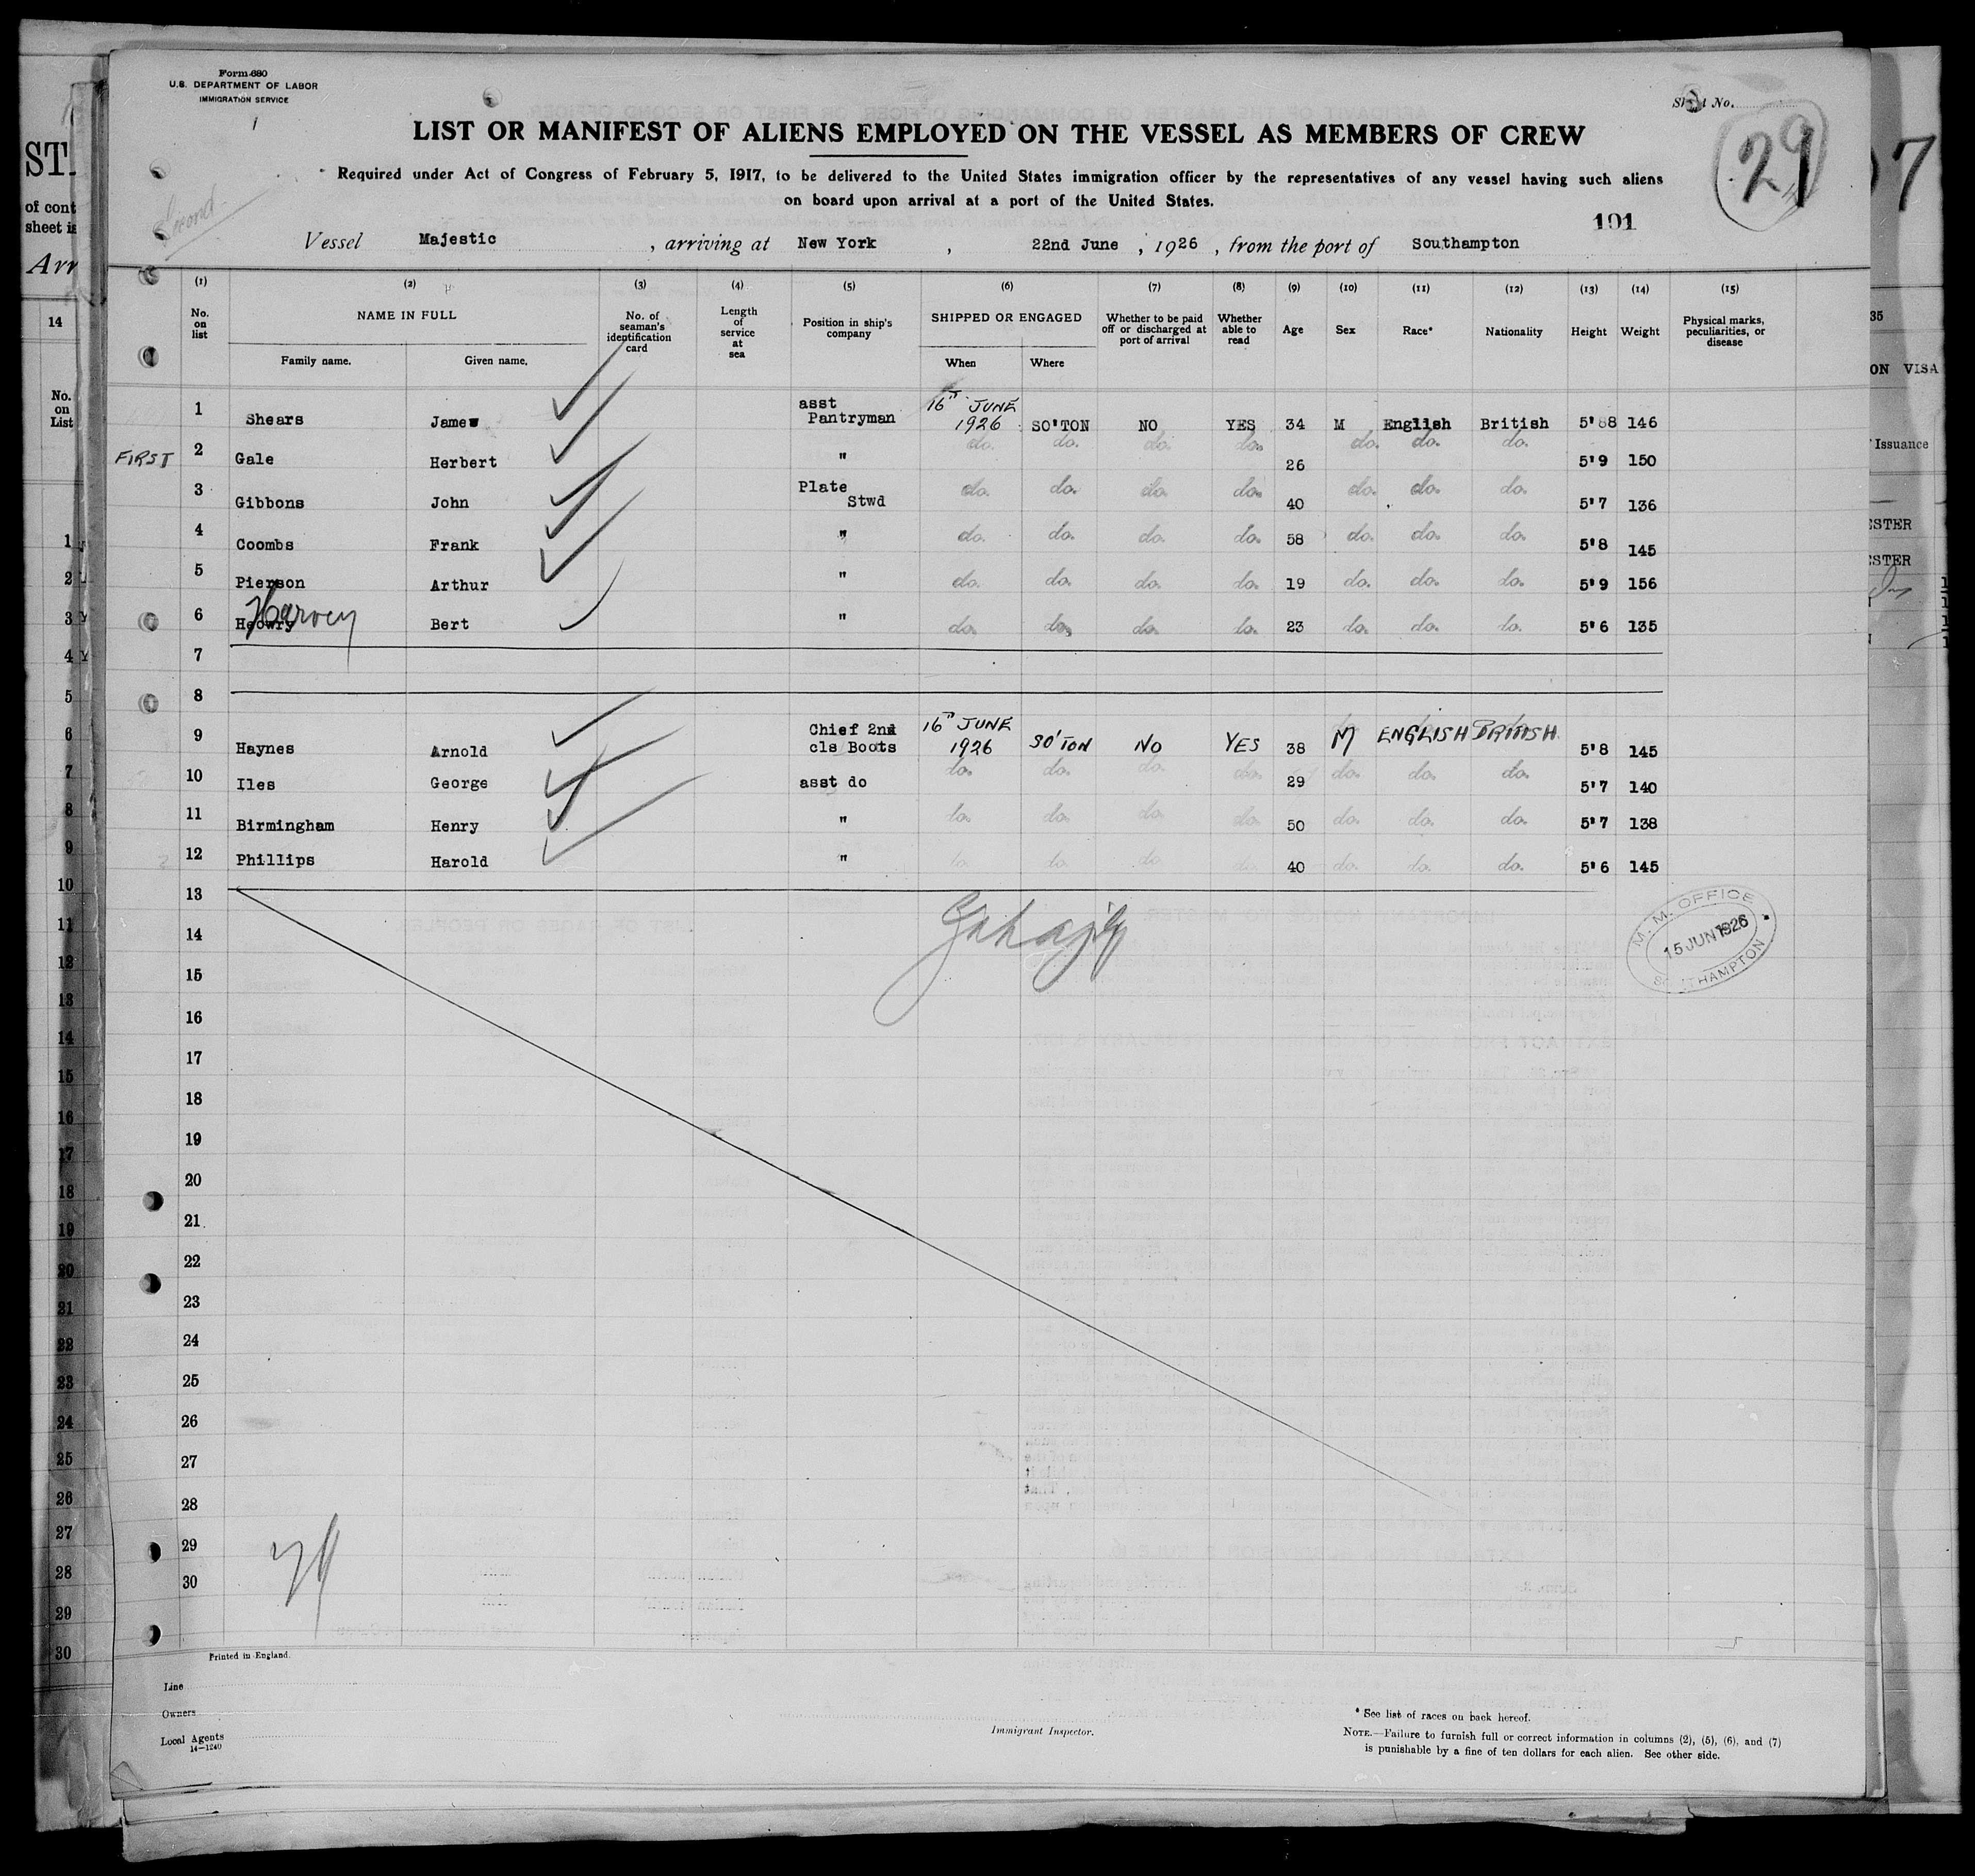 Form 680
U.S. DEPARTMENT OF LABOR
IMMIGRATION SERVICE
1
No.
29
LIST OR MANIFEST OF ALIENS EMPLOYED ON THE VESSEL AS MEMBERS OF CREW
Required under Act of Congress of February 5, 1917, to be delivered to the United States immigration officer by the representatives of any vessel having such aliens
on board upon arrival at a port of the United States.
Second
191
Vessel Majestic , arriving at New York , 22nd June , 1926 , from the port of Southampton
(1) (2) (3) (4) (5) (6) (7) (8) (9) (10) (11) (12) (13) (14) (15)
No. on list NAME IN FULL Family name. Given name. No. of seaman's identification card Length of service at sea Position in ship's company SHIPPED OR ENGAGED When Where Whether to be paid off or discharged at port of arrival Whether able to read Age Sex Race* Nationality Height Weight Physical marks, peculiarities, or disease
1 Shears James asst Pantryman 16th JUNE 1926 SO'TON NO YES 34 M English British 5'8 146
FIRST 2 Gale Herbert " do. do. do. do. 26 do. do. do. 5'9 150
3 Gibbons John Plate Stwd do. do. do. do. 40 do. do. do. 5'7 136
4 Coombs Frank " do. do. do. do. 58 do. do. do. 5'8 145
5 Pierson Arthur " do. do. do. do. 19 do. do. do. 5'9 156
6 Harvey Bert " do. do. do. do. 23 do. do. do. 5'6 135
7
8
9 Haynes Arnold Chief 2nd cls Boots 16th JUNE 1926 SO'TON NO YES 38 M ENGLISH BRITISH 5'8 145
10 Iles George asst do do. do. do. do. 29 do. do. do. 5'7 140
11 Birmingham Henry " do. do. do. do. 50 do. do. do. 5'7 138
12 Phillips Harold " do. do. do. do. 40 do. do. do. 5'6 145
13
M. M. OFFICE
15 JUN 1926
SOUTHAMPTON
14
15
16
17
18
19
20
21
22
23
24
25
26
27
28
29
30
Printed in England.
Line
Owners
Local Agents
14—1240
Immigrant Inspector.
* See list of races on back hereof.
NOTE.—Failure to furnish full or correct information in columns (2), (5), (6), and (7)
is punishable by a fine of ten dollars for each alien. See other side.
ST
of cont
sheet is
Arr
14
No.
on
List
1
2
3
4
5
6
7
8
9
10
11
12
13
14
15
16
17
18
19
20
21
22
23
24
25
26
27
28
29
30
7
35
ON VISA
Issuance
STER
STER